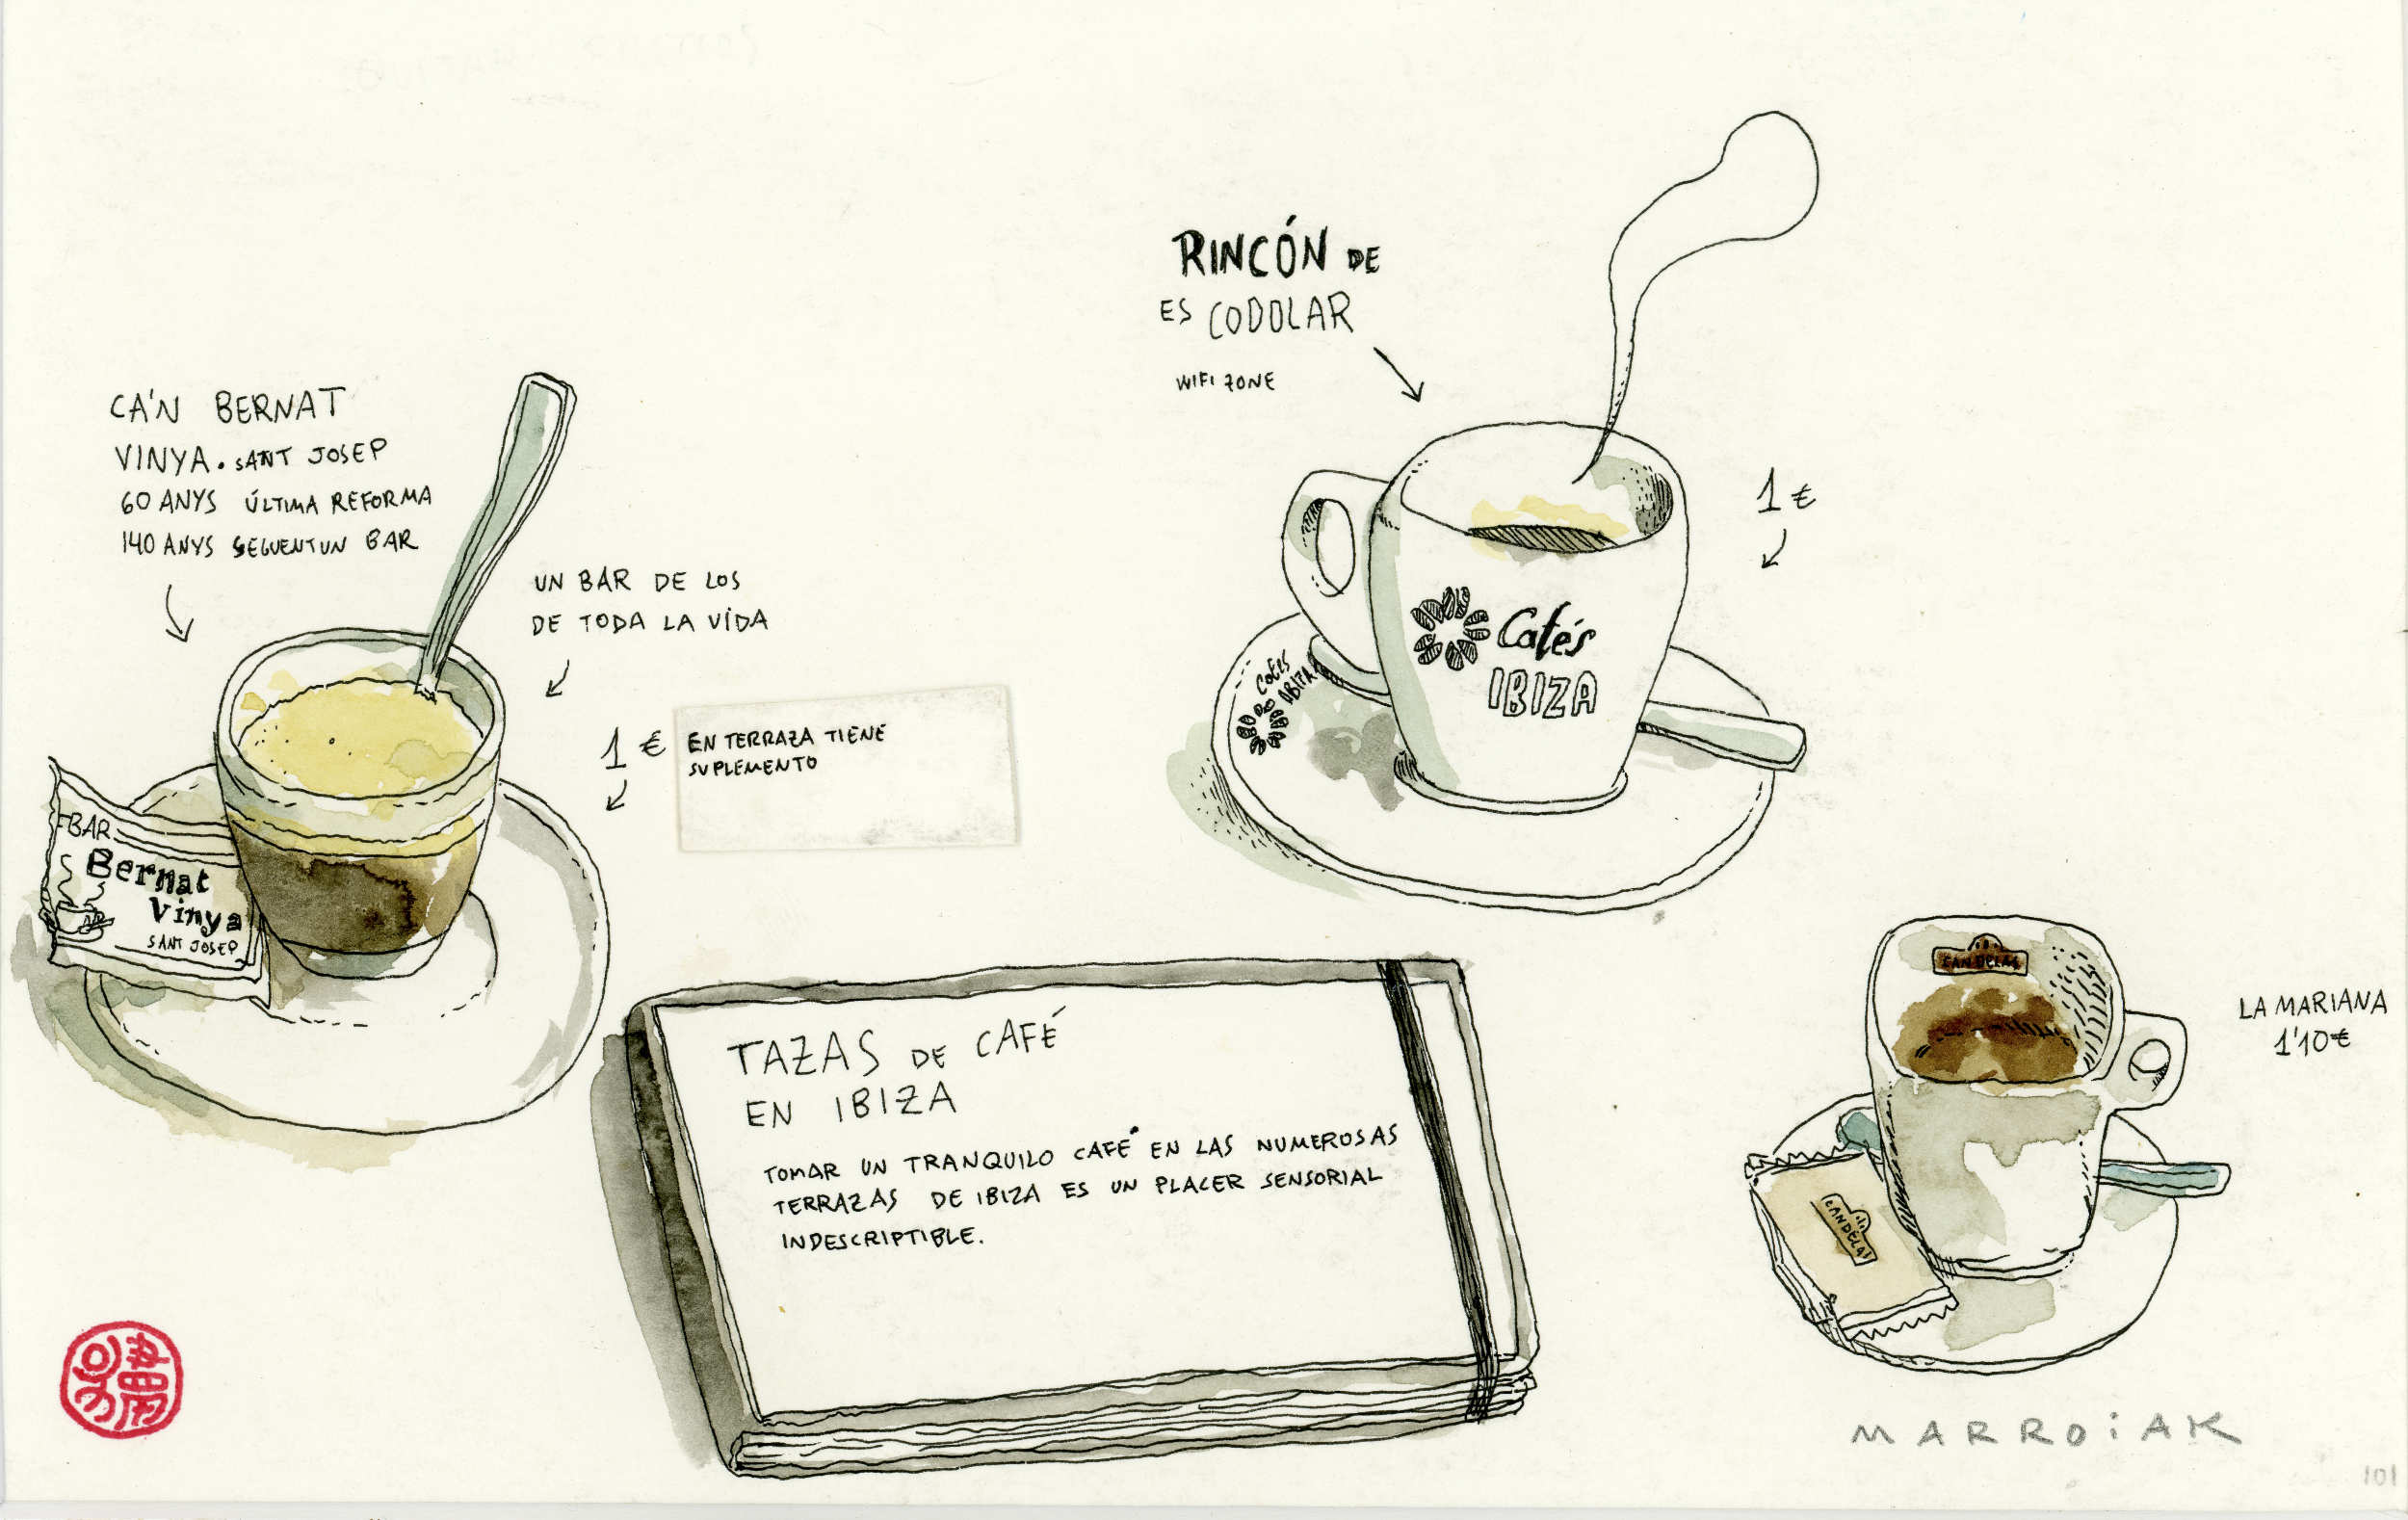 CA'N BERNAT
VINYA. SANT JOSEP
60 ANYS ÚLTIMA REFORMA
140 ANYS SEGUENT UN BAR
UN BAR DE LOS
DE TODA LA VIDA
1 €
EN TERRAZA TIENE
SUPLEMENTO
BAR
Bernat
Vinya
SANT JOSEP
RINCÓN DE
ES CODOLAR
WIFI ZONE
1 €
Cafés
IBIZA
Cafés
IBIZA
TAZAS DE CAFÉ
EN IBIZA
TOMAR UN TRANQUILO CAFÉ EN LAS NUMEROSAS
TERRAZAS DE IBIZA ES UN PLACER SENSORIAL
INDESCRIPTIBLE.
CANDELAS
LA MARIANA
1'10€
CANDELAS
MARROiAK
101